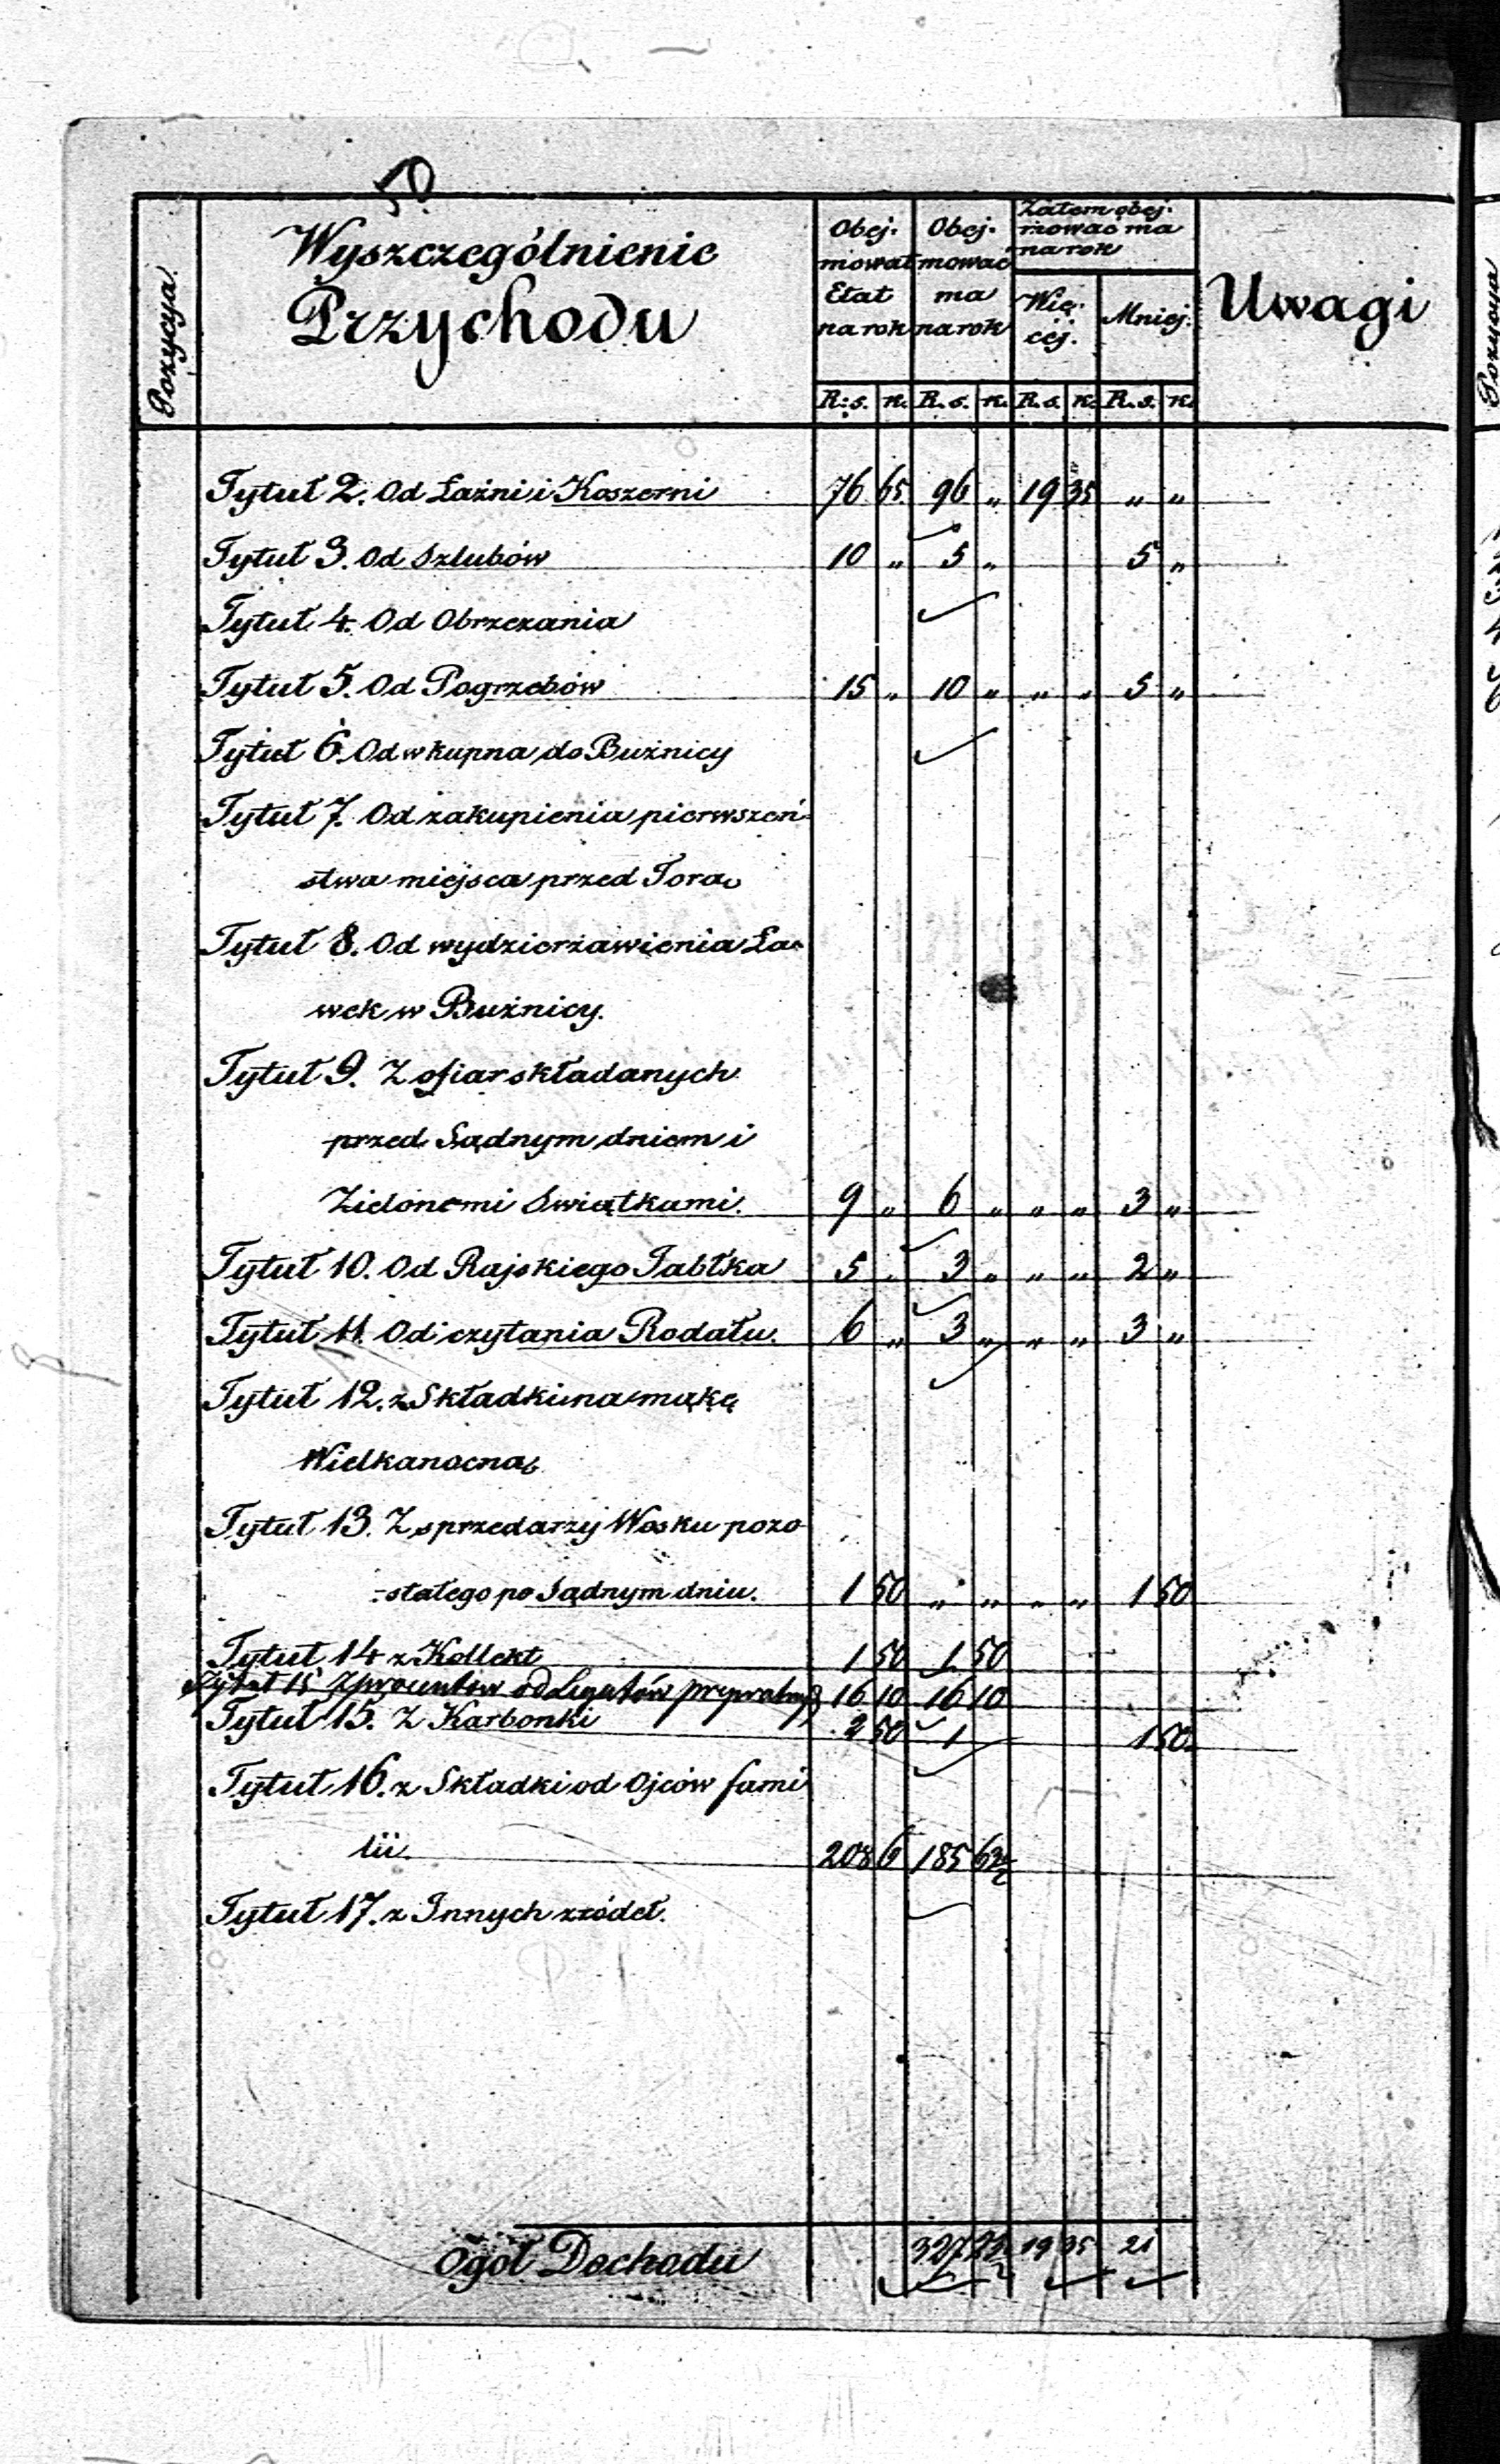 50
Pozycya
Wyszczególnienie
Przychodu
Obej-
mował
Etat
na rok
Obej-
mować
ma
na rok
Zatem obej-
mować ma
na rok
Wię-
cej.
Mniej.
Uwagi
R. s. k. R. s. k. R. s. k. R. s. k.
Tytuł 2. Od Łaźni i Koszerni 76 65 96 „ 19 35 „ „
Tytuł 3. Od Szlubów 10 „ 5 „ 5 „
Tytuł 4. Od Obrzezania
Tytuł 5. Od Pogrzebów 15 „ 10 „ „ „ 5 „
Tytuł 6. Od wkupna do Bużnicy
Tytuł 7. Od zakupienia pierwszeń-
stwa miejsca przed Torą
Tytuł 8. Od wydzierżawienia Ła-
wek w Bużnicy.
Tytuł 9. Z ofiar składanych
przed Sądnym dniem i
Zielonemi Swiątkami. 9 „ 6 „ „ „ 3 „
Tytuł 10. Od Rajskiego Jabłka 5 „ 3 „ „ „ 2 „
Tytuł 11. Od czytania Rodału. 6 „ 3 „ „ „ 3 „
Tytuł 12. z Składki na mąkę
Wielkanocną
Tytuł 13. Z sprzedarzy Wosku pozo-
stałego po Sądnym dniu. 1 50 „ „ „ „ 1 50
Tytuł 14 z Kollekt 1 50 1 50
Tytuł 15 Z procentów od Legatów 16 10 16 10
Tytuł 15. Z Karbonki 2 50 1 1 50
Tytuł 16. z Składki od Ojców fami
lii. 208 6 185 63½
Tytuł 17. z Innych zródeł.
Ogół Dochodu 327 23½ 19 35 21